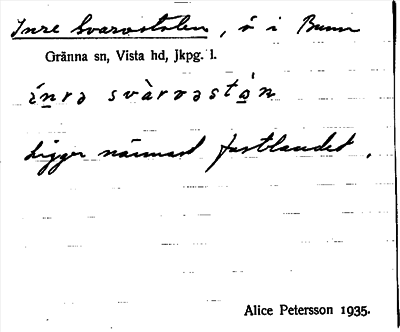 Inre Svarvstolen, ö i Bunn
Gränna sn, Vista hd, Jkpg. l.
ínrə svàrvəstò̱n
Ligger närmast fastlandet.
Alice Petersson 1935.